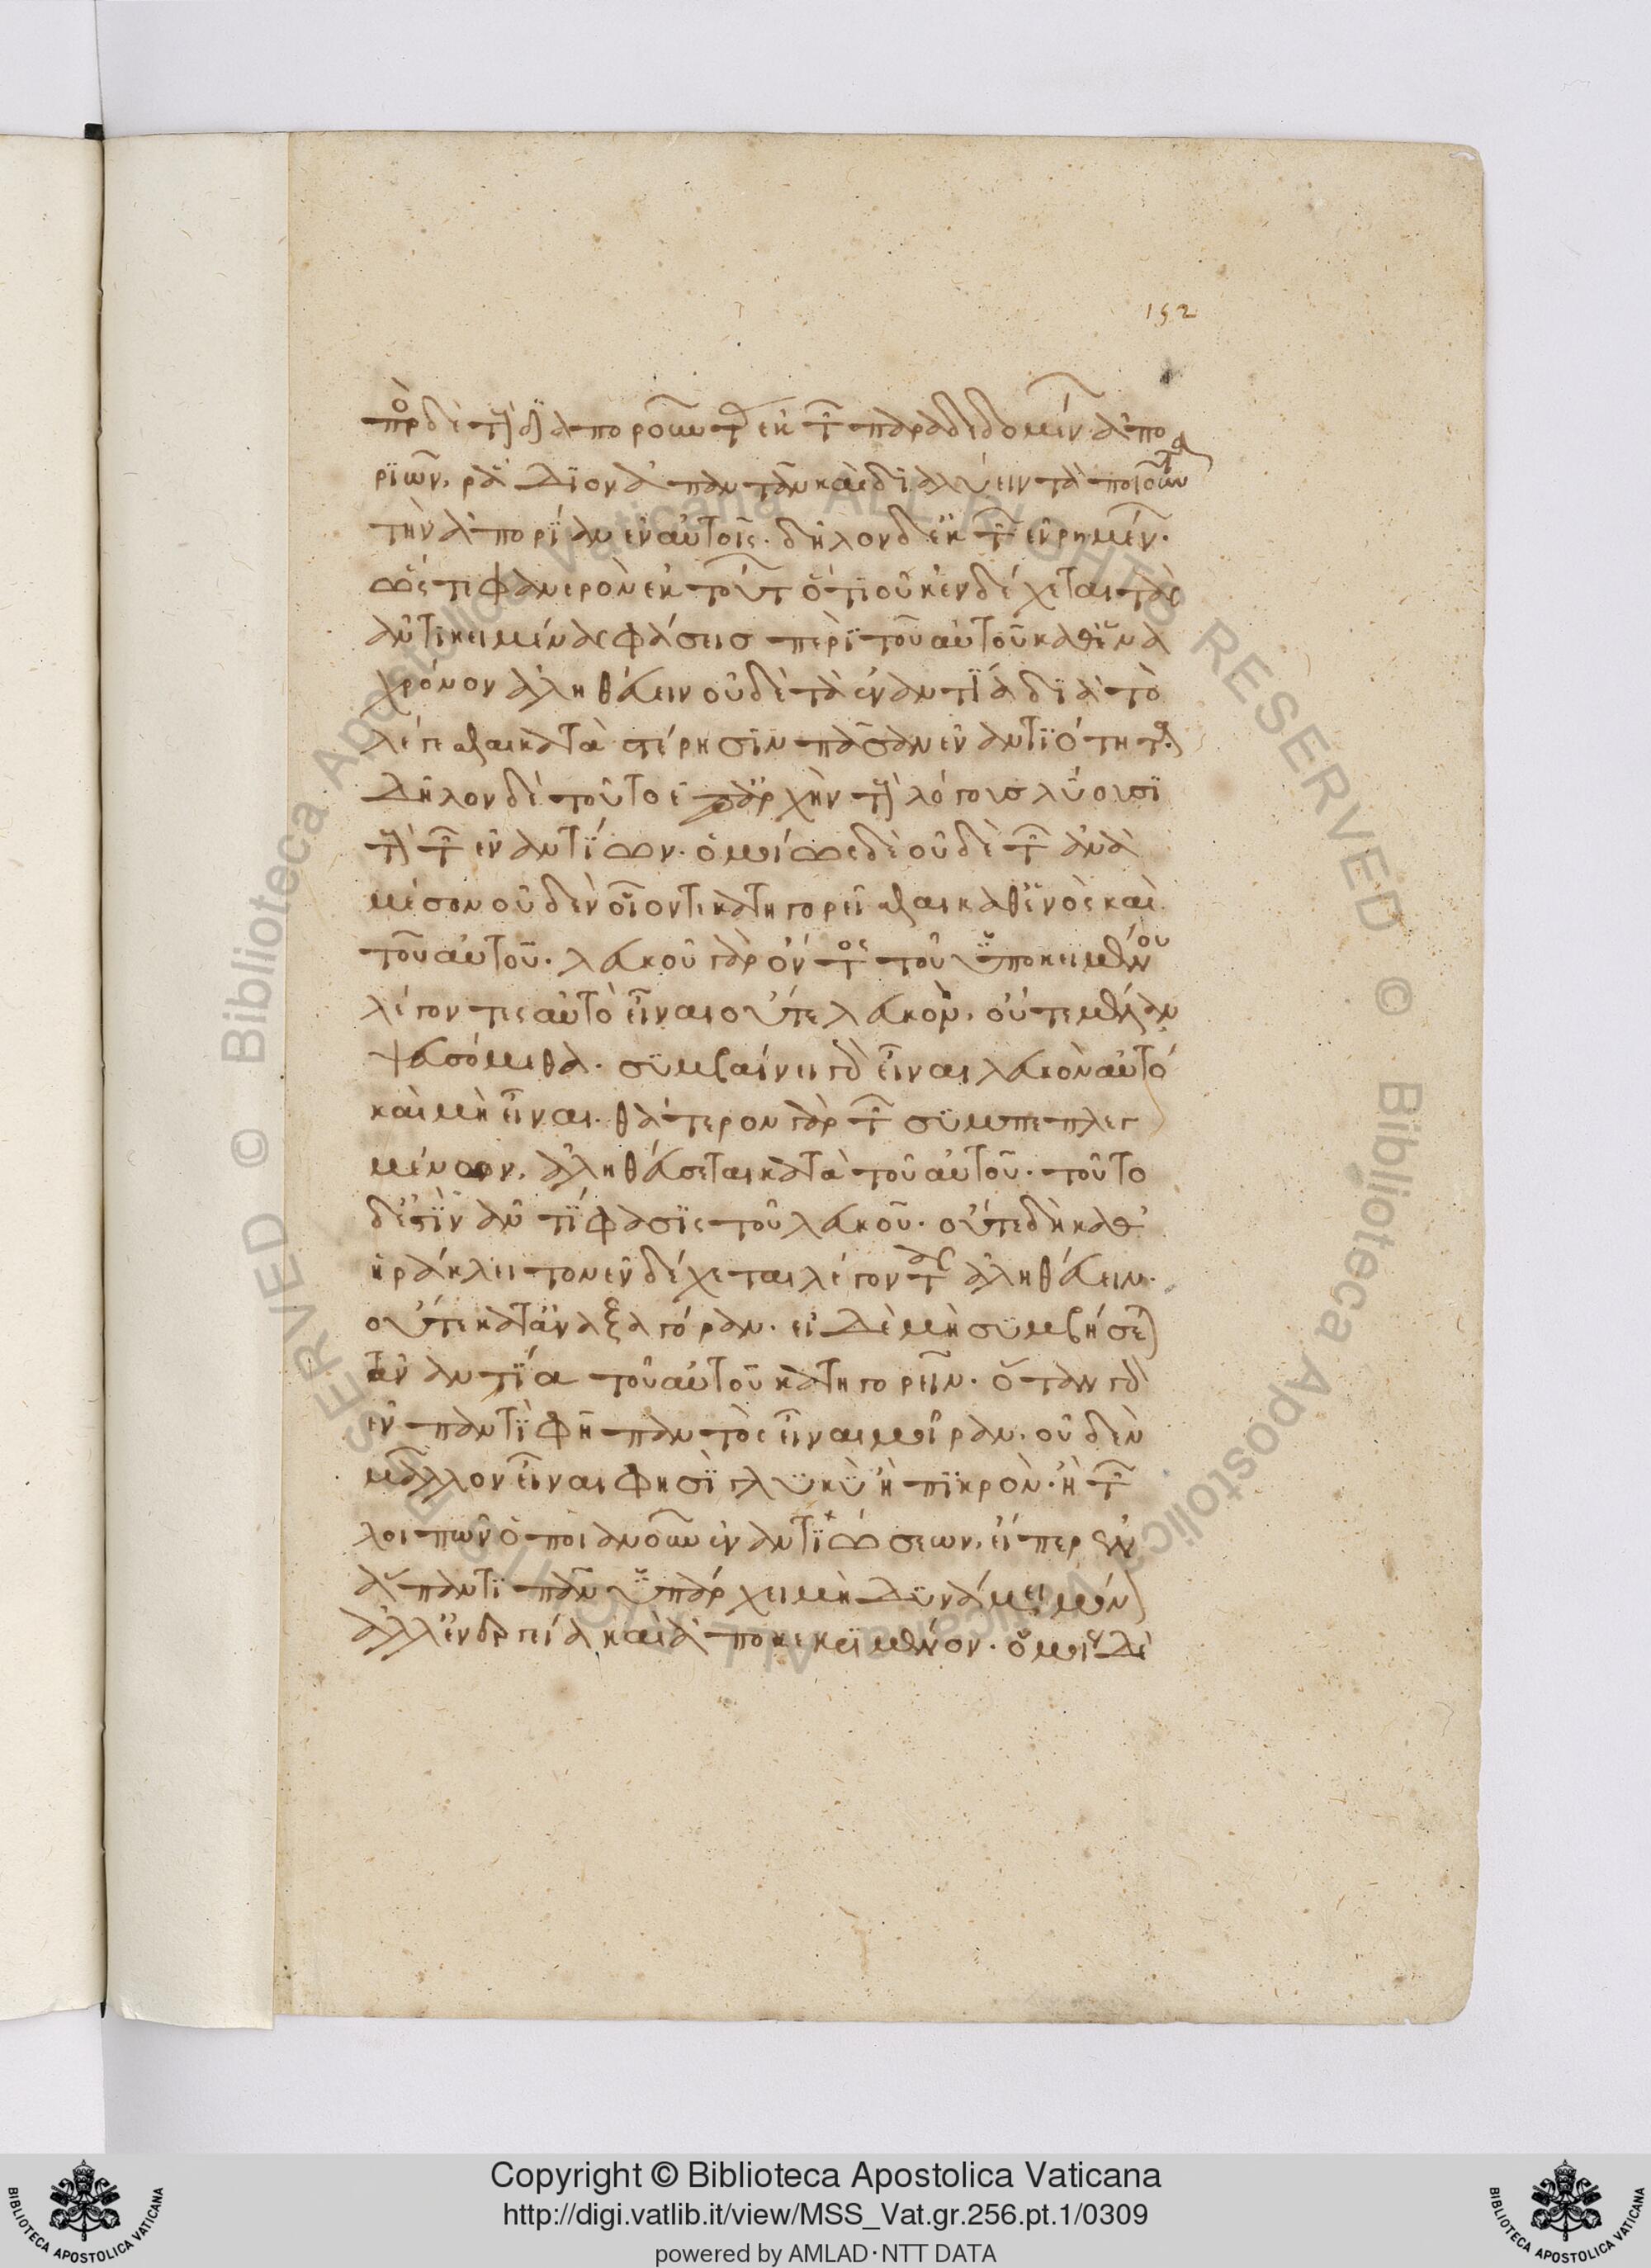 152
πρὸς δὲ τοὺς ἐξ ἀποροῦντας ἐκ τῶν παραδεδομένων ἀπο
ριῶν, ῥᾴδιον ἀπαντᾶν καὶ διαλύειν τὰ ποιοῦντα
τὴν ἀπορίαν ἐν αὐτοῖς. δῆλον δ' ἐκ τῶν εἰρημένων.
ὥστε φανερὸν ἐκ τούτων ὅτι οὐκ ἐνδέχεται τὰς
ἀντικειμένας φάσεις περὶ τοῦ αὐτοῦ καθ' ἕνα
χρόνον ἀληθεύειν οὐδὲ τὰ ἐναντία διὰ τὸ
λέγεσθαι κατὰ στέρησιν πᾶσαν ἐναντιότητα
δῆλον δὲ τοῦτο ἐπ' ἀρχὴν τοὺς λόγοις λύουσι
τοὺς τῶν ἐναντίων. ὁμοίως δὲ οὐδὲ τῶν ἀνὰ
μέσον οὐδὲν οἷόν τε κατηγορεῖσθαι καθ' ἑνὸς καὶ
τοῦ αὐτοῦ. λευκοῦ γὰρ ὄντος τοῦ ὑποκειμένου
λέγοντες αὐτὸ εἶναι οὔτε λευκόν, οὔτε μέλαν
ψευσόμεθα. συμβαίνει γὰρ εἶναι λευκὸν αὐτό
καὶ μὴ εἶναι. θάτερον γὰρ τῶν συμπεπλεγ
μένων, ἀληθεύσεται κατὰ τοῦ αὐτοῦ. τοῦτο
δ' ἐστὶν ἀντίφασις τοῦ λευκοῦ. οὔτε δὴ καθ'
ἡράκλειτον ἐνδέχεται λέγοντας ἀληθεύειν.
οὔτε κατ' ἀναξαγόραν. εἰ δὲ μὴ συμβήσεται
τἀναντία τοῦ αὐτοῦ κατηγορεῖν. ὅταν γὰρ
ἐν παντὶ φῇ παντὸς εἶναι μοῖραν, οὐδὲν
μᾶλλον εἶναι φησὶ γλυκὺ ἢ πικρὸν. ἢ τῶν
λοιπῶν ὁποιανοῦν ἐναντιώσεων, εἴπερ ἐν
ἅπαντι πᾶν ὑπάρχει μὴ δυνάμει μόνον
ἀλλ' ἐνεργείᾳ καὶ ἀποκεκριμένον. ὁμοίως δὲ
Copyright © Biblioteca Apostolica Vaticana
http://digi.vatlib.it/view/MSS_Vat.gr.256.pt.1/0309
powered by AMLAD·NTT DATA